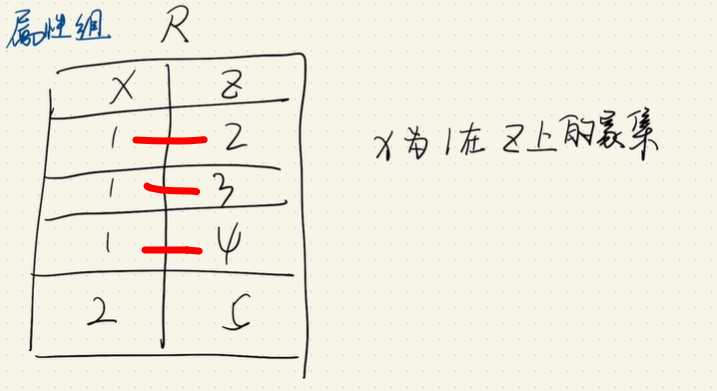 属性组 R
X Z
1 2
1 3
1 4
2 5
X为1在Z上的象集